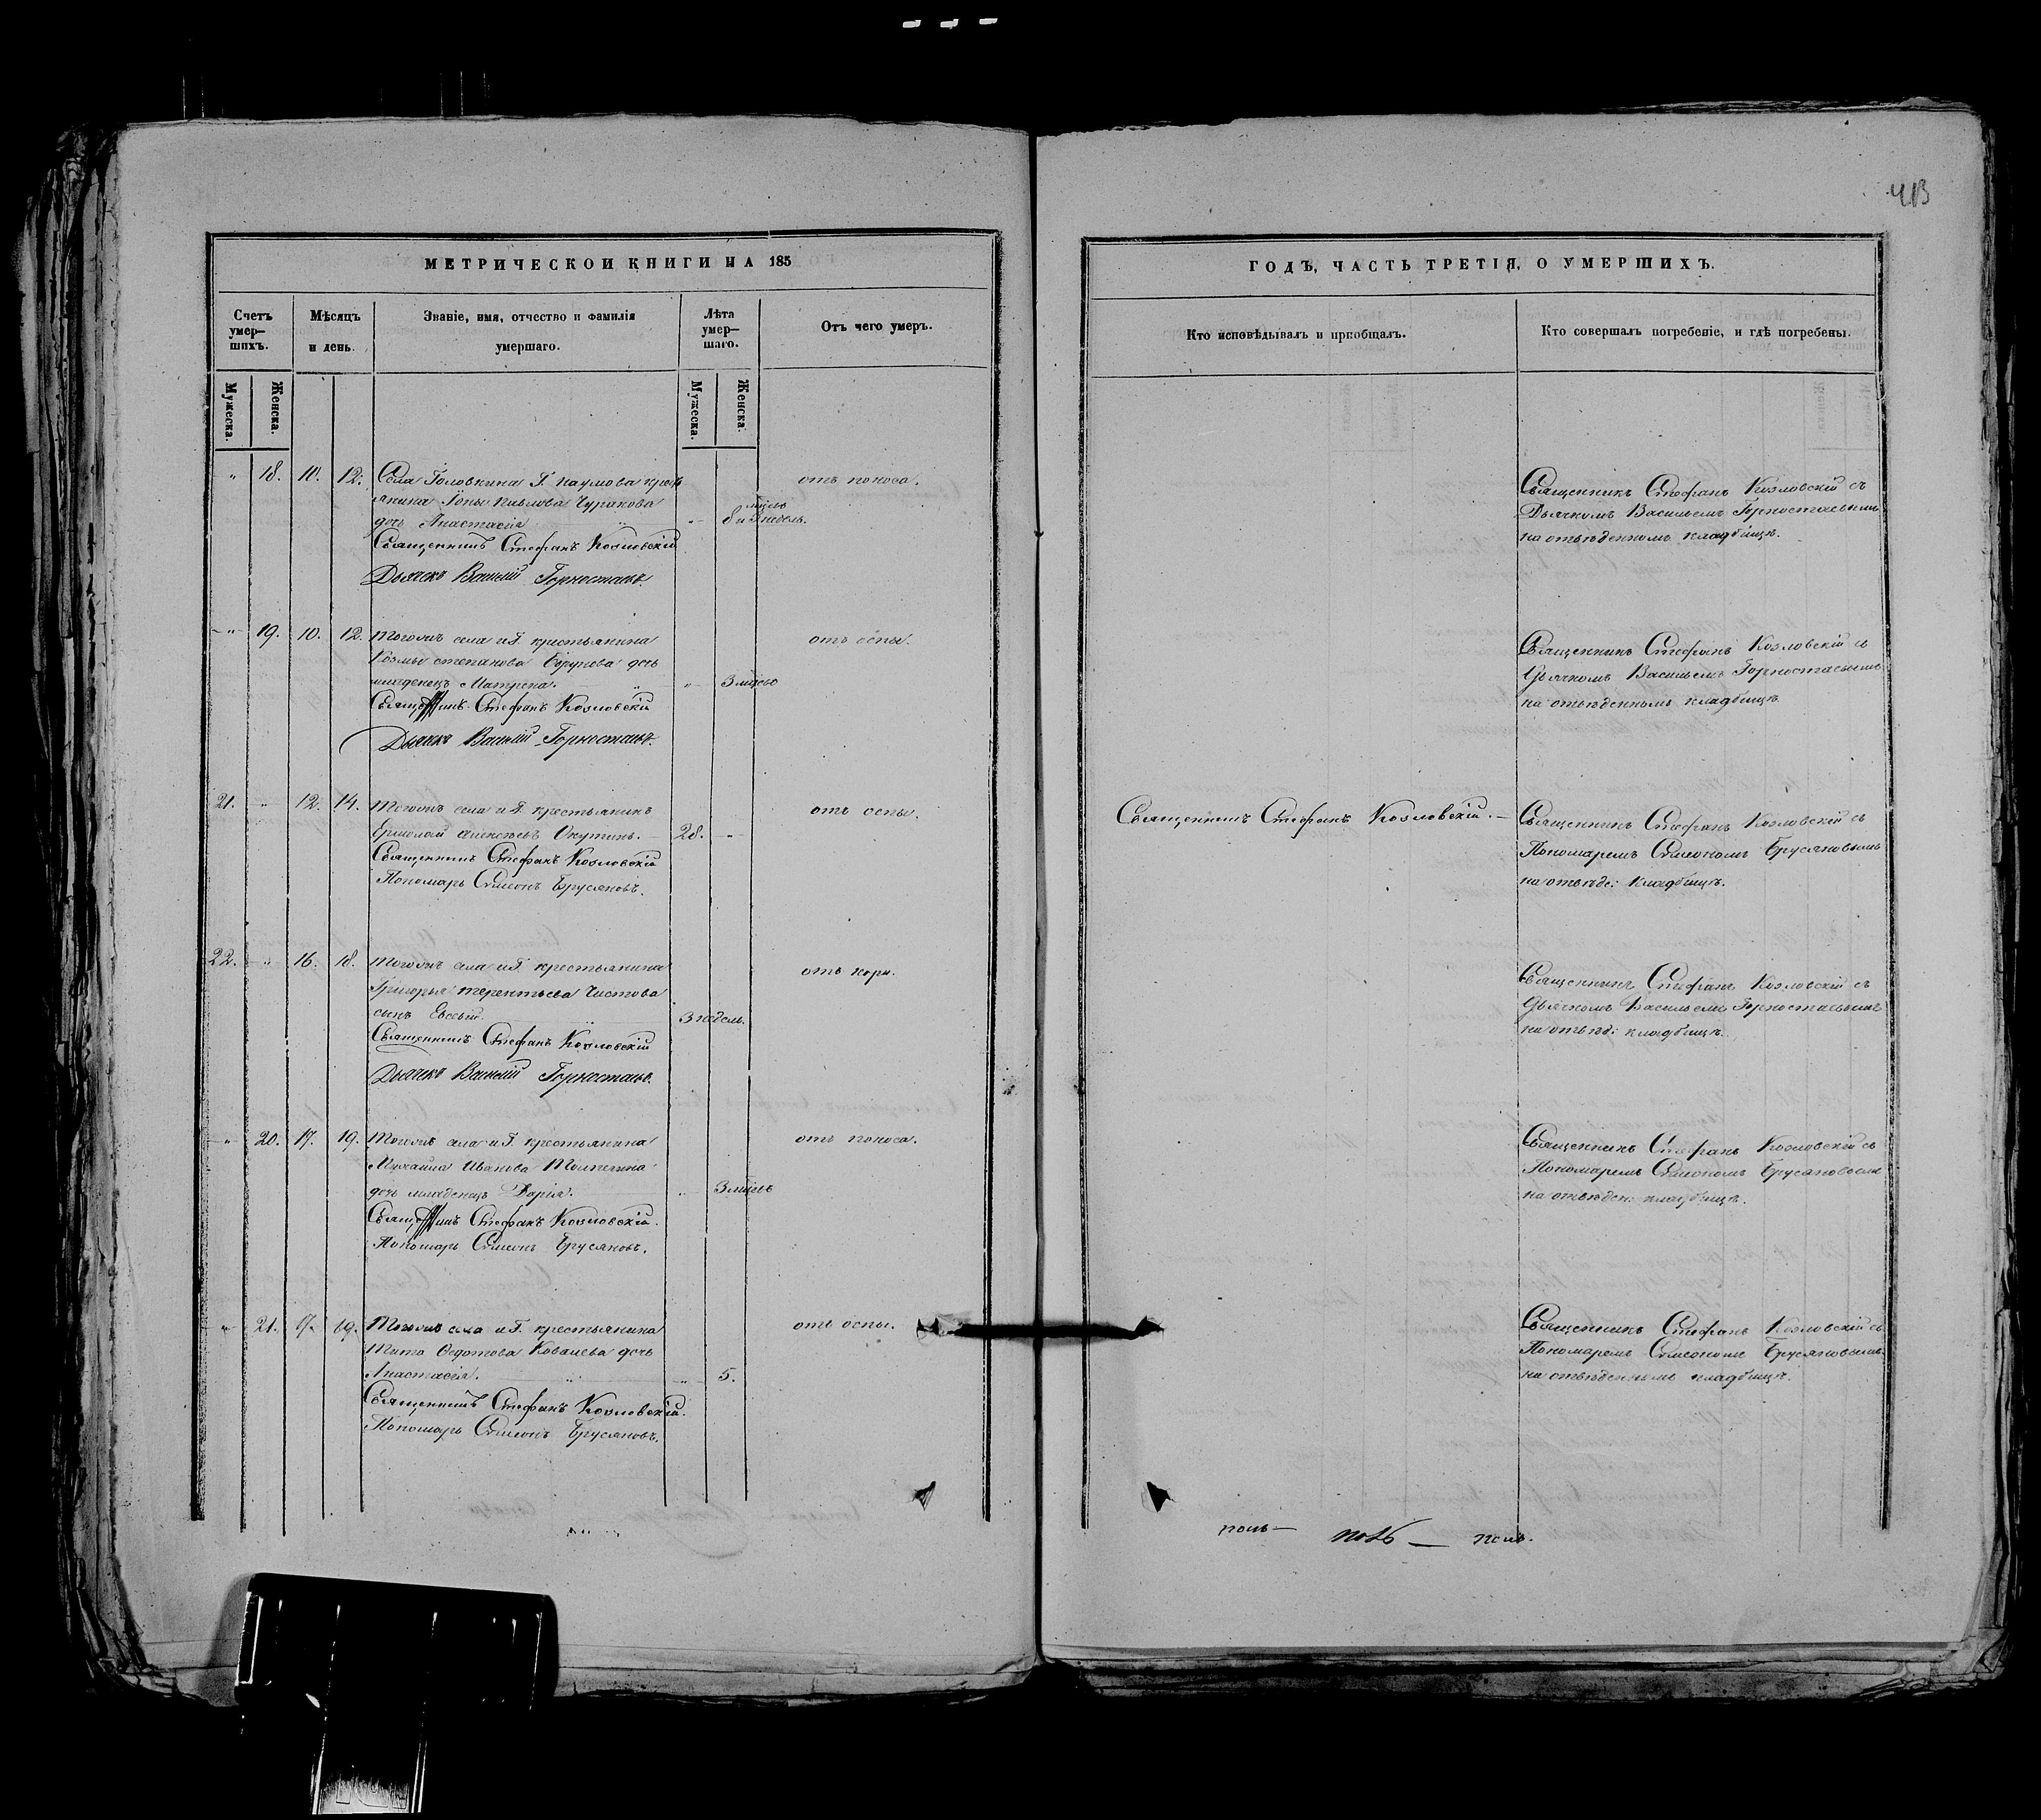 413
МЕТРИЧЕСКОЙ КНИГИ НА 185
Счетъ умер-шихъ.
Мѣсяцъ и день.
Званіе, имя, отчество и фамилія умершаго.
Лѣта умер-шаго.
Отъ чего умеръ.
Мужеска.
Женска.
Мужеска.
Женска.
" 18. 10. 12. Села Головкина Г. Наумова крестъ отъ поноса.
янина Іоны Павлова Чуракова мѣсць
дочь Анастасія " " 8 и 3 недель.
Священникъ Стефанъ Козловскій
Дьячекъ Василій Горностаевъ.
" 19. 10. 12. Тогожъ села и Г. крестьянина отъ оспы.
Козмы Степанова дочь
младенецъ Матрена. " " 3 мѣсцъ
Священникъ Стефанъ Козловскій
Дьячекъ Василій Горностаевъ.
21. " 12. 14. Тогожъ села и Г. крестьянинъ отъ оспы.
Ермолай Алексѣевъ Окутинъ. 28. "
Священникъ Стефанъ Козловскій
Пономарь Симеонъ Брусяновъ.
22. " 16. 18. Тогожъ села и Г. крестьянина отъ кори.
Григорья Терентьева Чистова
сынъ Евсевій. " 3 недель.
Священникъ Стефанъ Козловскій
Дьячекъ Василій Горностаевъ.
" 20. 17. 19. Тогожъ села и Г. крестьянина отъ поноса.
Михаила Иванова
дочь младенецъ Дарія. " 3 мѣсцъ
Священникъ Стефанъ Козловскій.
Пономарь Симеонъ Брусяновъ.
" 21. 17. 19. Тогожъ села и Г. крестьянина отъ оспы.
Тита Ѳедотова Ковалева дочь
Анастасія. " " 5.
Священникъ Стефанъ Козловскій.
Пономарь Симеонъ Брусяновъ.
ГОДЪ, ЧАСТЬ ТРЕТІЯ, О УМЕРШИХЪ.
Кто исповѣдывалъ и пріобщалъ.
Кто совершалъ погребеніе, и гдѣ погребены.
Священникъ Стефанъ Козловскій съ
Дьячкомъ Васильемъ Горностаевымъ
на отведенномъ кладбищѣ.
Священникъ Стефанъ Козловскій съ
Дьячкомъ Васильемъ Горностаевымъ
на отведенномъ кладбищѣ
Священникъ Стефанъ Козловскій.— Священникъ Стефанъ Козловскій съ
Пономаремъ Симеономъ Брусяновымъ
на отведе: кладбищѣ.
Священникъ Стефанъ Козловскій съ
Дьячкомъ Васильемъ Горностаевымъ
на отвед: кладбищѣ.
Священникъ Стефанъ Козловскій съ
Пономаремъ Симеономъ Брусяновымъ
на отведен: кладбищѣ.
Священникъ Стефанъ Козловскій съ
Пономаремъ Симеономъ Брусяновымъ.
на отведенномъ кладбищѣ.